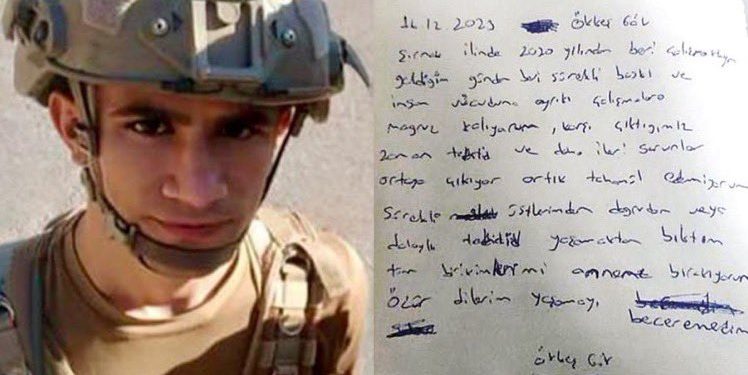 16 12 2023 Ökkeş Gök
Şırnak ilinde 2020 yılından beri çalışmaktayım
geldiğim günden beri sürekli baskı ve
insan vücuduna aykırı çalışmalara
magruz kalıyorum, karşı çıktığımız
zaman tehtid ve daha ileri sorunlar
ortaya çıkıyor artık tahamül edemiyorum
Sürekli üstlerimden doğrudan veya
dolaylı tehtid yaşamaktan bıktım
tüm birikimlerimi anneme bırakıyorum
Özür dilerim yaşamayı
beceremedim
Ökkeş Gök